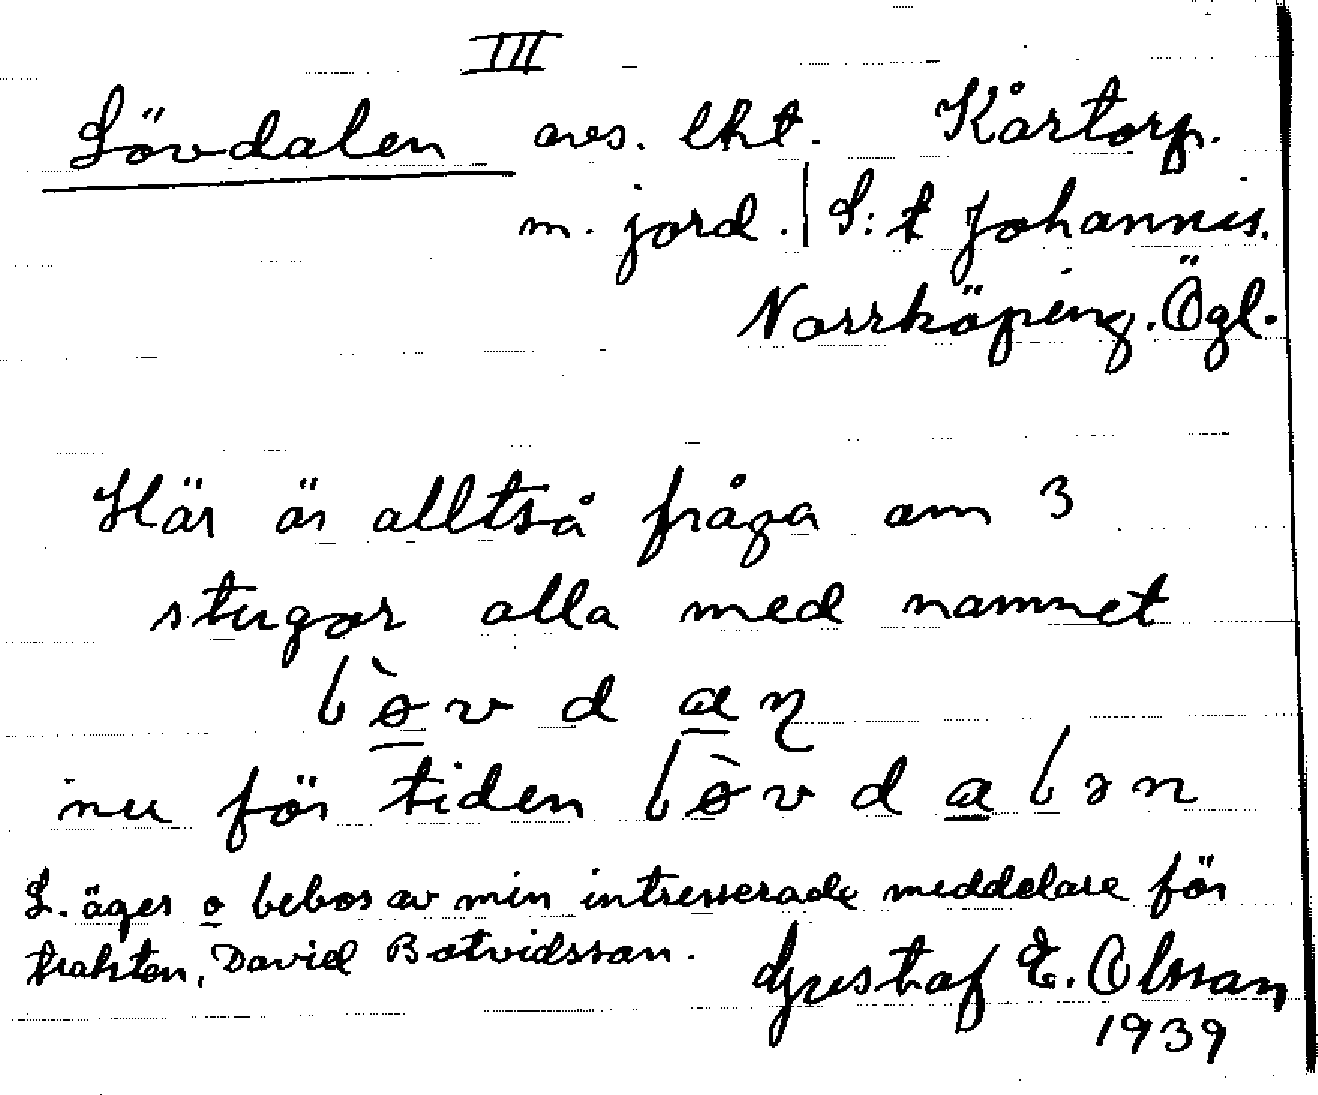 III
Lövdalen avs. lht. Kårtorp.
m. jord. | S:t Johannis.
Norrköping. Ögl.
Här är alltså fråga om 3
stugor alla med namnet
lø̀vdaɳ
nu för tiden lø̀vdalən
L. äges o bebos av min intresserade meddelare för
trakten, David Botvidsson. Gustaf E. Olsson
1939